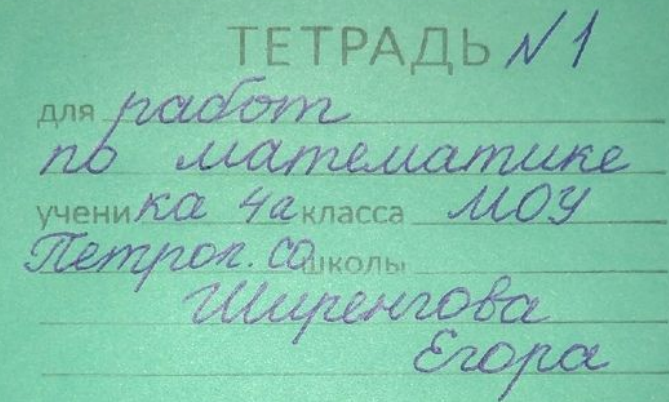 ТЕТРАДЬ №1
для работ
по математике
ученика 4а класса МОУ
Петроп. СО школы
Ширенгова
Егора